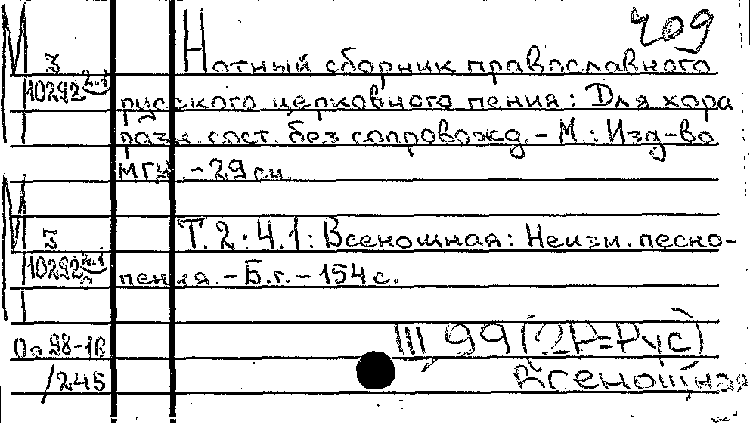 409
М
3
10292 2-1
Нотный сборник православного
русского церковного пения: Для хора
разн. сост. без сопровожд. - М.: Изд-во
МГК. - 29 см.
М
3
10292 2-1
Т.2: Ч.1: Всенощная: Неизм. песно-
пения. - Б.г. - 154 с.
98-18
/245
III 99 (2Р=Рус)
Всенощная